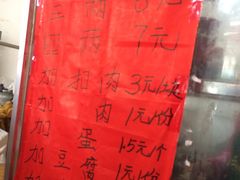 三两6元
四两7元
加扣肉3元/块
加肉1元/份
加蛋1.5元/个
加豆腐1元/份